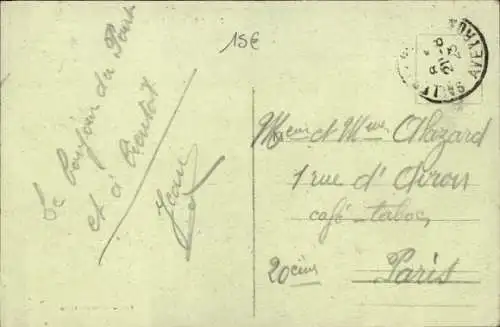 15€
Le Bonjour du Pont
et à Bientot
Jean
Mieur et Mme Alazard
1 rue d'Avron
café-tabac,
20eme Paris
AVEYRON